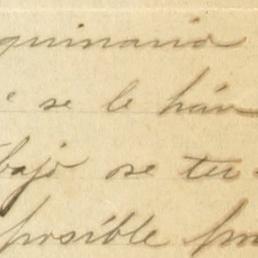 quinaria
se le hán
bajo se ter
posible pro